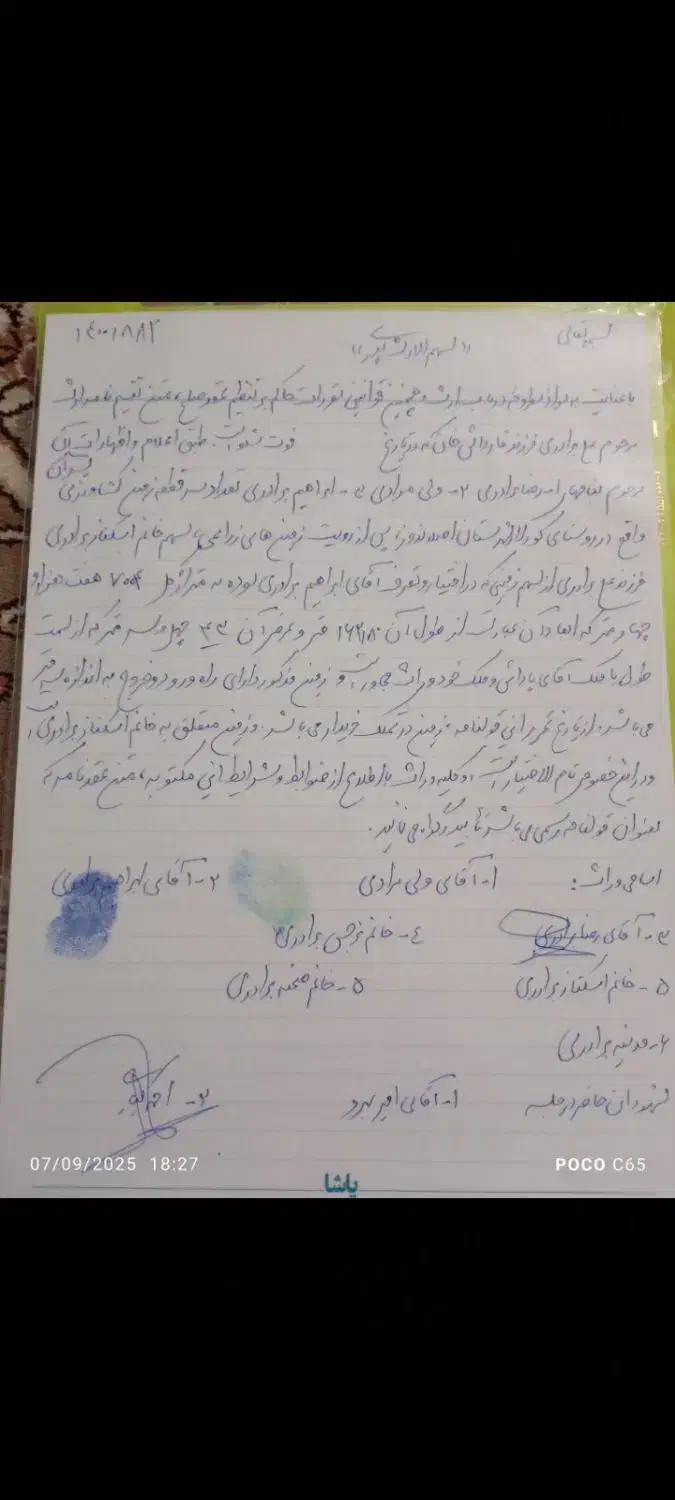 بسمه تعالی
"سهم الارث پدری"
با عنایت به مواد مطروحه در باب ارث و همچنین قوانین مقررات حاکم بر تنظیم عقود صلح، متن تقسیم نامه وراث
مرحوم علی برادری فرزند که در تاریخ فوت شده است. طبق اعلام و اظهارات آن
پسران
مرحوم بنامهای ۱- رضا برادری ۲- ولی مرادی ۳- ابراهیم برادری تعداد سه قطعه زمین کشاورزی
واقع در روستای شهرستان پس از رویت زمین های زراعی، سهم خانم اسکناز برادری
فرزند علی برادری از سهم زمینی که در اختیار و تصرف آقای ابراهیم برادری بوده به متراژ کل ۷۰۰۴ هفت هزار و
چهار متر که ابعاد آن عبارت از طول آن متر و عرض آن چهل و سه متر که از سمت
طول با ملک آقای پاداشی و ملک خود وراث مجاور است و زمین مذکور دارای راه ورود و خروج به اندازه سه متر
می باشد. از تاریخ تحریر این قولنامه زمین در تملک خریدار می باشد. و زمین متعلق به خانم اسکناز برادری است
و در این خصوص تام الاختیار است، و کلیه وراث با اطلاع از ضوابط و شرایط این مکتوبه، متن عقدنامه که
بعنوان قولنامه رسمی می باشد تأیید گردانه می نمایند.
اسامی وراث: ۱- آقای ولی مرادی ۲- آقای ابراهیم برادری
۳- آقای رضا برادری ۴- خانم نرجس برادری
۵- خانم اسکناز برادری ۵- خانم برادری
۶- مدینه برادری
شهود حاضر در جلسه ۱- آقای امیر ۲-
07/09/2025 18:27
POCO C65
پاشا